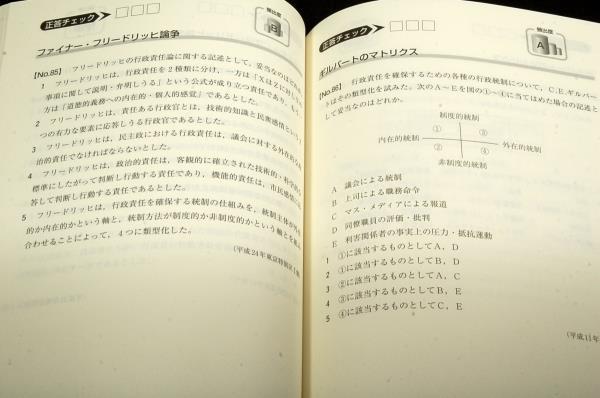 正答チェック
頻出度
B
ファイナー・フリードリッヒ論争
[No.85] フリードリッヒの行政責任論に関する記述として、妥当なのはどれか
1 フリードリッヒは、行政責任を2種類に分け、一方は「XはZに対し
事項に関して説明・弁明しうる」という公式が成り立つ責任であり、も
方は「道徳的義務への内在的・個人的感覚」であるとした。
2 フリードリッヒは、責任ある行政官とは、技術的知識と民衆感情という
つの有力な要素に応答しうる行政官であるとした。
3 フリードリッヒは、民主政における行政責任は、議会に対する外在的な
治的責任でなければならないとした。
4 フリードリッヒは、政治的責任は、客観的に確立された技術的・科学的
標準にしたがって判断し行動する責任であり、機能的責任は、市民感情に
答して判断し行動する責任であるとした。
5 フリードリッヒは、行政責任を確保する統制の仕組みを、統制主体が外
的か内在的かという軸と、統制方法が制度的か非制度的かという軸とを組み
合わせることによって、4つに類型化した。
(平成24年東京特別区
正答チェック
頻出度
A
ギルバートのマトリクス
[No.86] 行政責任を確保するための各種の行政統制について、C.E.ギルバー
トはその類型化を試みた。次のA~Eを図の①~④に当てはめた場合の記述と
して妥当なのはどれか。
制度的統制
① ③
内在的統制 外在的統制
② ④
非制度的統制
A 議会による統制
B 上司による職務命令
C マス・メディアによる報道
D 同僚職員の評価・批判
E 利害関係者の事実上の圧力・抵抗運動
1 ①に該当するものとしてA、D
2 ①に該当するものとしてB、D
3 ②に該当するものとしてA、C
4 ③に該当するものとしてB、E
5 ④に該当するものとしてC、E
(平成11年